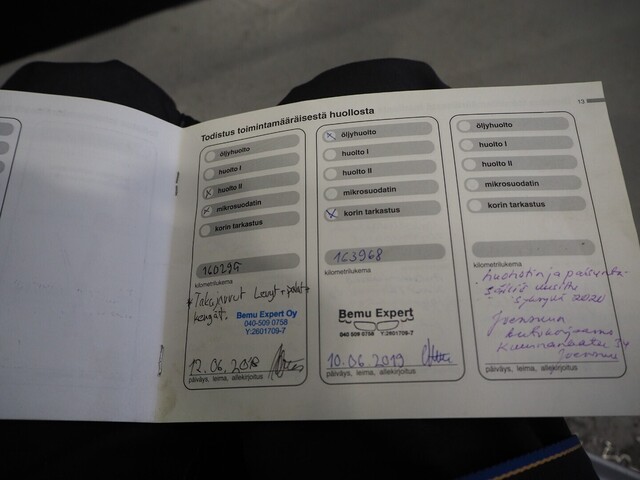 13
Todistus toimintamääräisestä huollosta
öljyhuolto
huolto I
huolto II
mikrosuodatin
korin tarkastus
160295
kilometrilukema
Takajarrut Levyt + palat +
kengät.
Bemu Expert Oy
040-509 0758
Y:2601709-7
12.06.2018
päiväys, leima, allekirjoitus
öljyhuolto
huolto I
huolto II
mikrosuodatin
korin tarkastus
163968
kilometrilukema
Bemu Expert
040 509 0758 Y:2601709-7
10.06.2019
päiväys, leima, allekirjoitus
öljyhuolto
huolto I
huolto II
mikrosuodatin
korin tarkastus
kilometrilukema
ja
2020
Joensuun
Joensuu
päiväys, leima, allekirjoitus